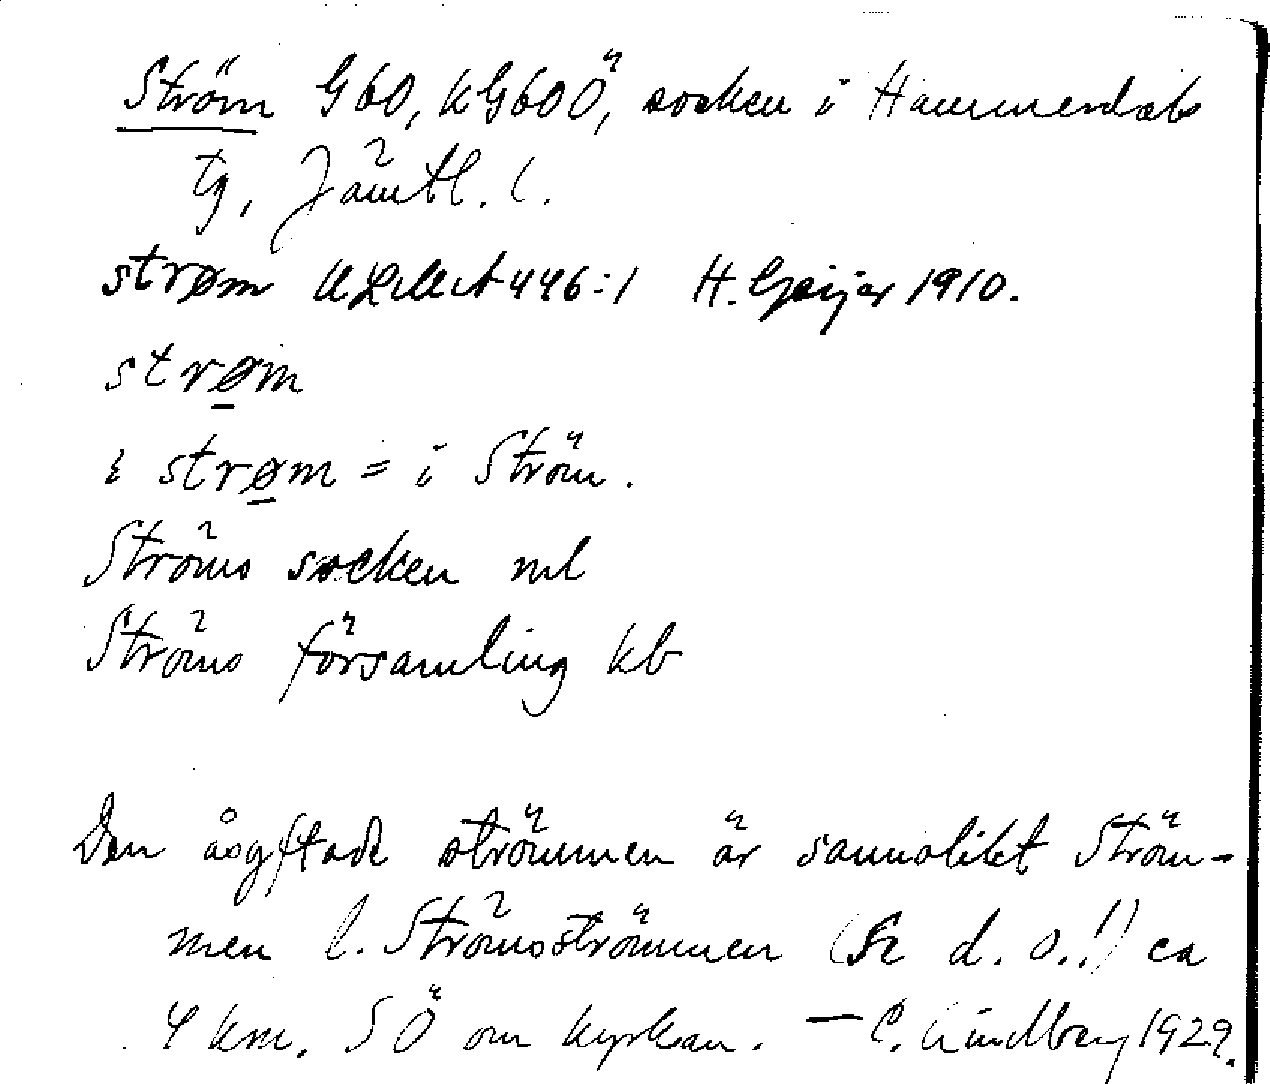 Ström G60, kG60Ö, socken i Hammerdals
tg, Jämtl. l.
strøm ULMA 446:1 H. Geijer 1910.
strøm
i strøm = i Ström.
Ströms socken ml
Ströms församling kb
Den åsyftade strömmen är sannolikt Ström-
men l. Strömsströmmen (Se d. o.!) ca
4 km. SÖ om kyrkan. — C. Lindberg 1929.